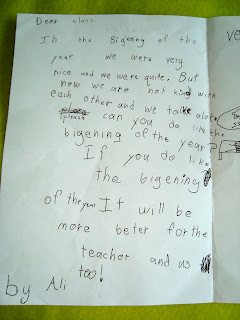 Dear class
In the Bigening of the
year we were very
nice and we were quite. But
now we are not kind with
each other and we talk alot
please can you do like the
bigening of the year?
If you do like
the bigening
of the year It will be
more beter for the
teacher and us
too!
by Ali
ve